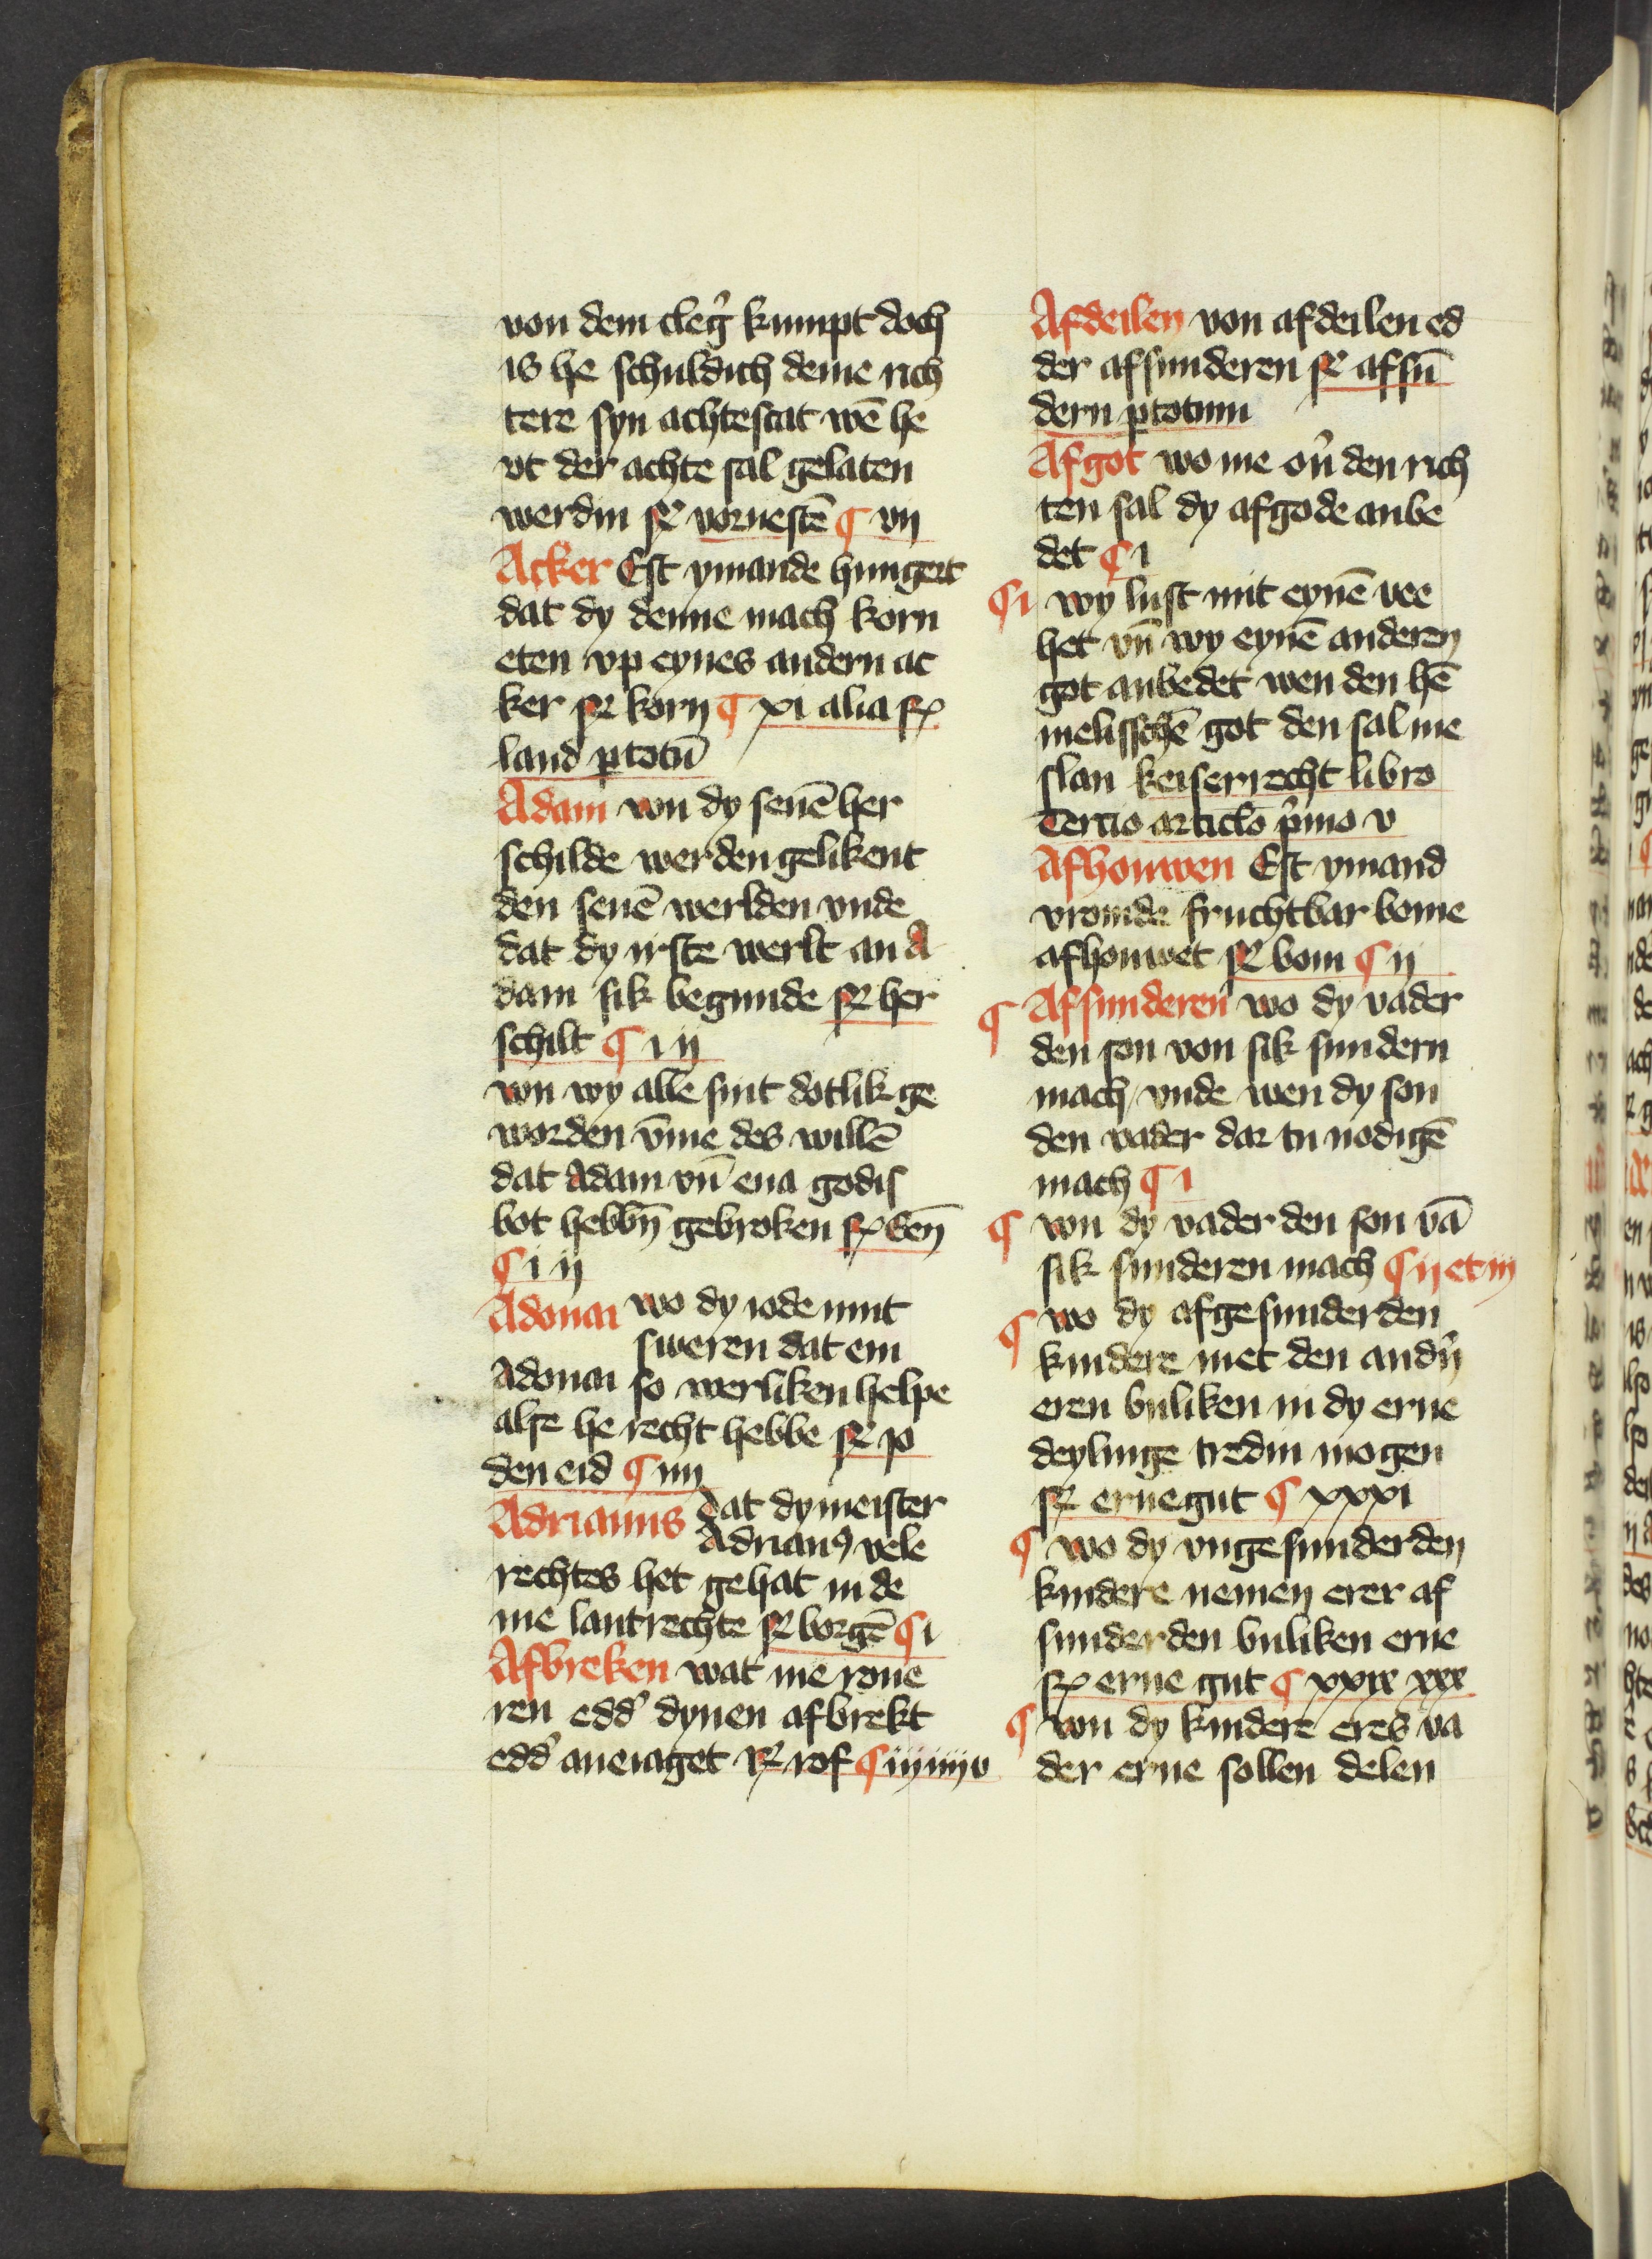 von dem cleg̉ kumpt doch
is he schuldich deme rich
tere syn achtescat wē he
vt der achte sal gelaten
werdin sꝛ vornestē ¶ vij
Acker Est ymande hungert
dat dy denne mach korn
eten vp eynes andern ac
ker sꝛ korn ¶ xi alia sꝛ
land ꝑ totū
Adam won dy seuē her
schilde werden gelikent
den seuē werlden vnde
dat dy irste werlt an A
dam sik begunde sꝛ her
schilt ¶ i ij
won wy alle sint dotlik ge
worden v̄me des willē
dat Adam vn̄ eua godis
bot hebbn̄ gebroken sꝛ Een̄
¶ i ij
Adonai wo dy iode mut
sweren dat em
Adonai so werliken helpe
alse he recht hebbe sꝛ jo
den eid ¶ iiij
Adrianus dat dy meister
Adrianꝰ vele
rechtes het gehat in de
me lantrechte sꝛ borgē ¶ i
Afbreken wat me roue
ren edd̉ dynen afbrekt
edd̉ aneiaget sꝛ rof ¶ iij iiij v
Afdeilen von afdeilen ed
der afsunderen sꝛ afsū
dern ꝑ totum
Afgot wo me ou̓ den rich
ten sal dy afgode anbe
det ¶ i
¶ i wy lust mit eynē vee
het vn̄ wy eynē anderen
got anbedet wen den hē
melisschē got den sal me
slan keiserrecht libro
Tercio articlo p̓mo v
Afhouwen Est ymand
vromde fruchtbar bome
afhouwet sꝛ bom ¶ ij
¶ Afsunderen wo dy vader
den son von sik sundern
mach / vnde wen dy son
den vader dar tu nodigē
mach ¶ i
¶ won dy vader den son vā
sik sunderen mach ¶ ij et iij
¶ wo dy afgesunderden
kindere met den andn̉
eren buliken in dy erue
deylinge tredin mogen
sꝛ eruegut ¶ xxxi
¶ wo dy vngesunderden
kindere nemen erer af
sunderden buliken erue
sꝛ erue gut ¶ xxix xxx
¶ won dy kindere eres va
der erue sollen delen